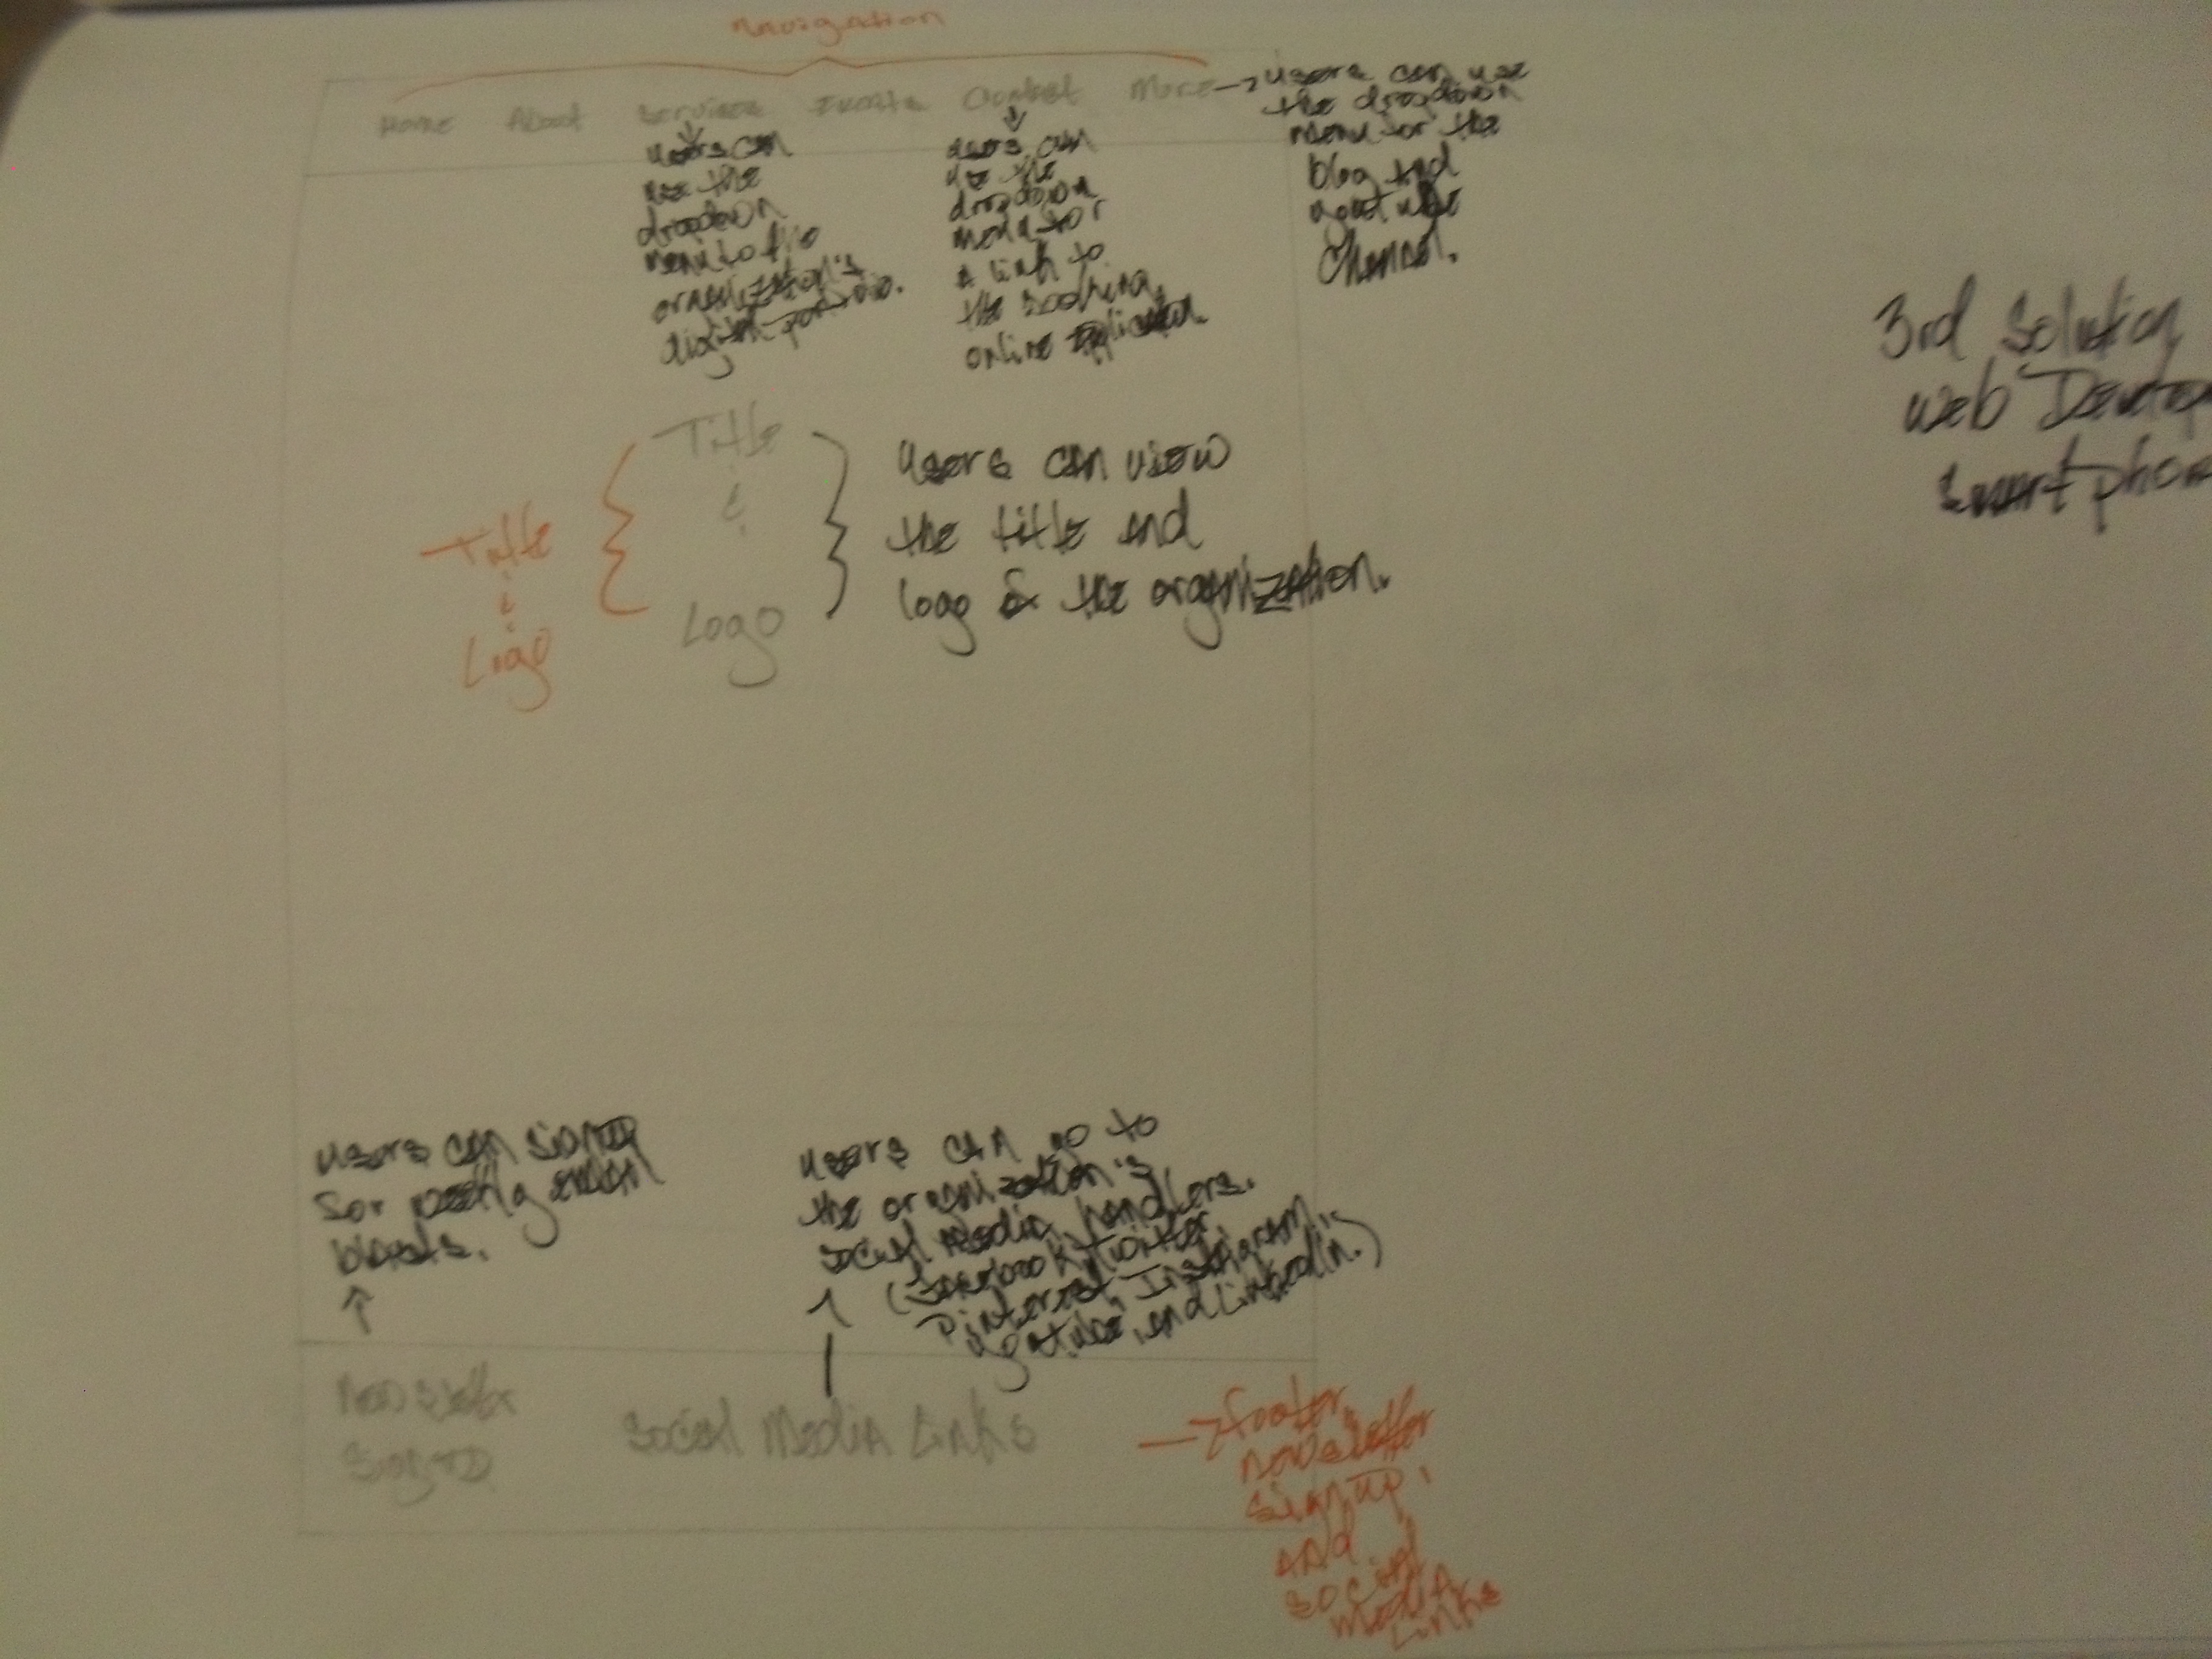 Navigation
Home About Services Events Contact More → users can use
the dropdown
menu for the
blog and
youtube
channel.
users can
use the
dropdown
menu to the
organization's
digital portfolio.
users can
use the
dropdown
menu for
a link to
the booking
online application.
3rd Solution
Web Develop
Smartphon
Title
&
Logo
Title
&
Logo
users can view
the title and
logo of the organization.
users can signup
for weekly email
blasts.
users can go to
the organization's
social media handlers.
(Facebook, Twitter,
Pinterest, Instagram,
youtube, and Linkedin.)
Newsletter
Signup
Social Media Links
→ footer,
newsletter
sign up,
and
social
media
Links